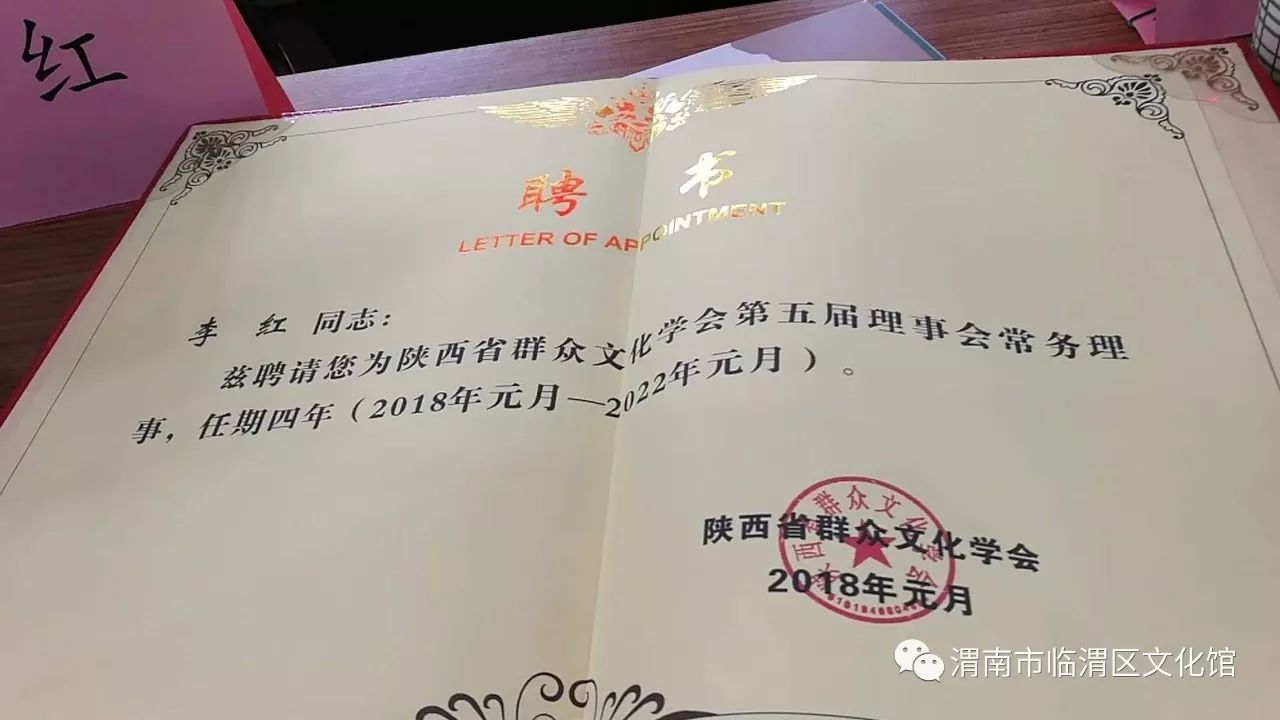 红
聘书
LETTER OF APPOINTMENT
李 红 同志：
兹聘请您为陕西省群众文化学会第五届理事会常务理
事，任期四年（2018年元月—2022年元月）。
陕西省群众文化学会
2018年元月
渭南市临渭区文化馆